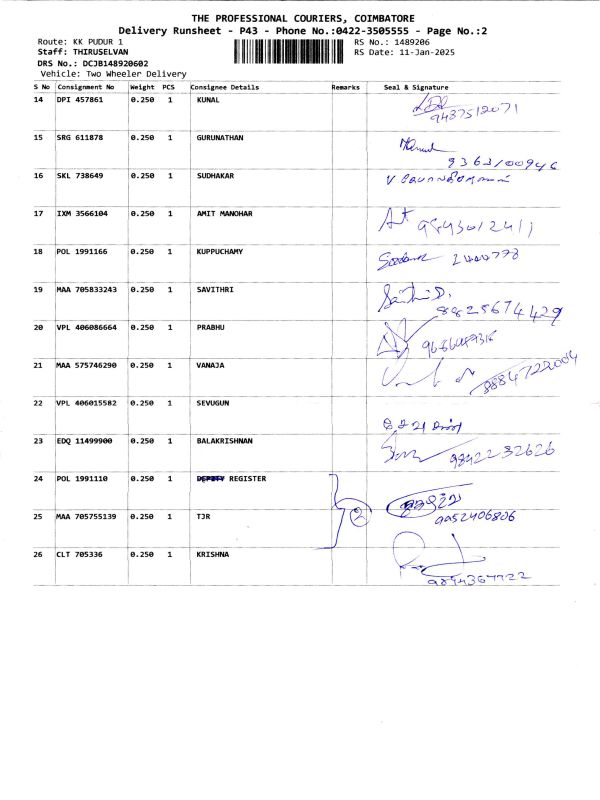 THE PROFESSIONAL COURIERS, COIMBATORE
Delivery Runsheet - P43 - Phone No.:0422-3505555 - Page No.:2
Route: KK PUDUR 1 RS No.: 1489206
Staff: THIRUSELVAN RS Date: 11-Jan-2025
DRS No.: DCJB148920602
Vehicle: Two Wheeler Delivery
S No Consignment No Weight PCS Consignee Details Remarks Seal & Signature
14 DPI 457861 0.250 1 KUNAL
9437512071
15 SRG 611878 0.250 1 GURUNATHAN
9363100946
16 SKL 738649 0.250 1 SUDHAKAR
17 IXM 3566104 0.250 1 AMIT MANOHAR
18 POL 1991166 0.250 1 KUPPUCHAMY
19 MAA 705833243 0.250 1 SAVITHRI
8825674429
20 VPL 406086664 0.250 1 PRABHU
21 MAA 575746290 0.250 1 VANAJA
8884722004
22 VPL 406015582 0.250 1 SEVUGUN
23 EDQ 11499900 0.250 1 BALAKRISHNAN
9842232626
24 POL 1991110 0.250 1 DEPUTY REGISTER
25 MAA 705755139 0.250 1 TJR 2
9952406806
26 CLT 705336 0.250 1 KRISHNA